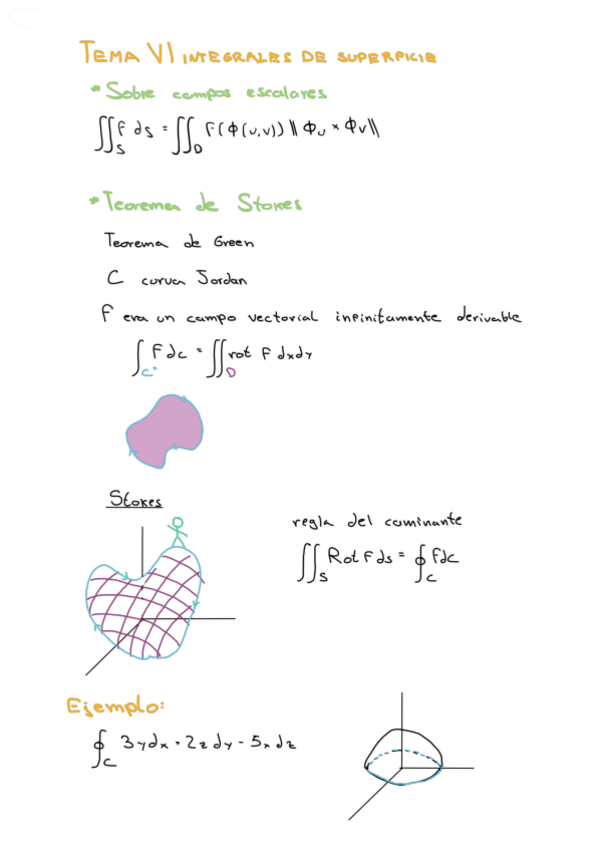 TEMA VI INTEGRALES DE SUPERFICIE
* Sobre campos escalares
∬_S f ds = ∬_D F(Φ(u,v)) ‖ Φu × Φv‖
* Teorema de Stokes
Teorema de Green
C curva Jordan
F era un campo vectorial infinitamente derivable
∫_C⁺ F dc = ∬_D rot F dxdy
Stokes
regla del caminante
∬_S Rot F ds = ∮_C Fdc
Ejemplo:
∮_C 3ydx + 2z dy - 5x dz